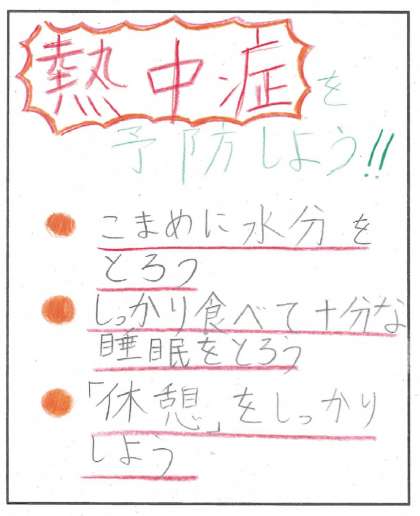 熱中症を
予防しよう!!
こまめに水分を
とろう
しっかり食べて十分な
睡眠をとろう
「休憩」をしっかり
しよう